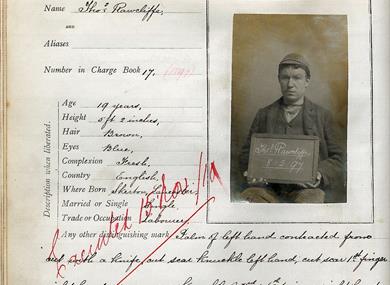 Name Thos. Rawcliffe,
AND
Aliases
Number in Charge Book 17.
Description when liberated.
Age 19 years,
Height 5 ft 2 inches,
Hair Brown,
Eyes Blue,
Complexion Fresh,
Country English,
Where Born Skerton, Lancaster,
Married or Single Single,
Trade or Occupation Labourer,
Any other distinguishing mark Palm of left hand contracted from
cut with a knife, cut scar knuckle left hand, cut scar 1st finger
Thos. Rawcliffe
8=5.97